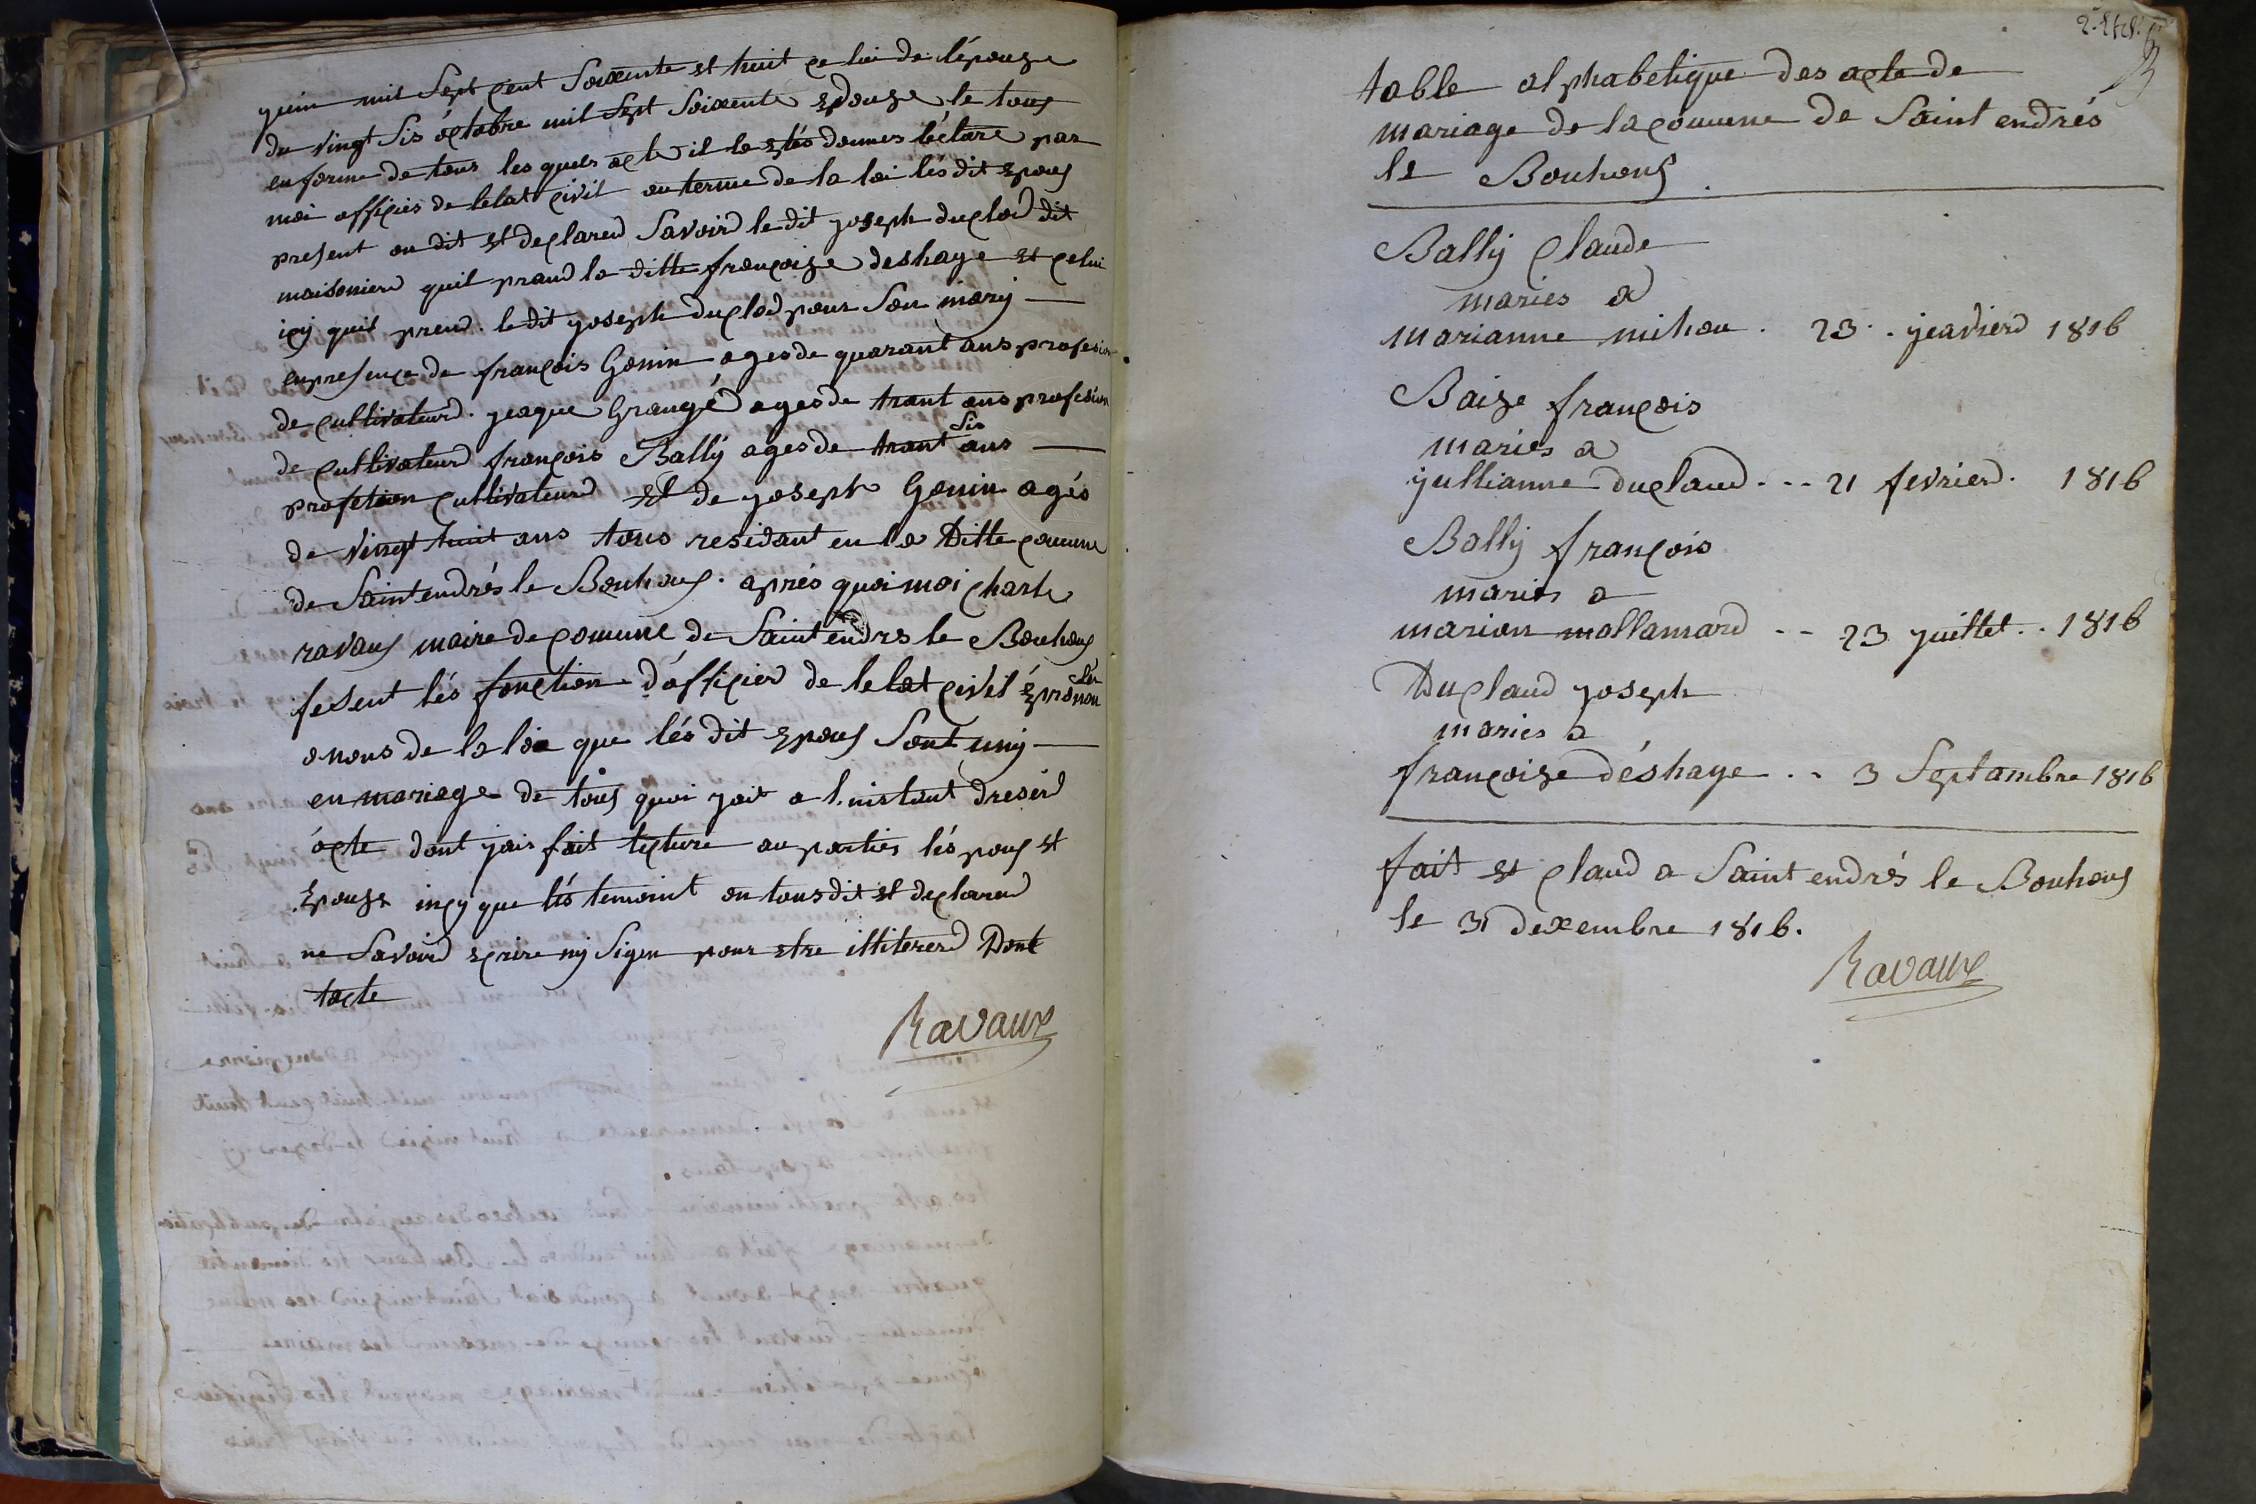 juin mil Sept cent Soixente et huit ce lui de l'épouse
du vingt Sis octobre mil Sept Soixente e douze le tous
en forme de tous les quels acte il le etés donnes léctare par
moi officies de lelat civil au terme de la loi lés dit epous
present on dit et declared Savoird le dit joseph duclod dit
maisonierd quil prand la ditte françoize deshaye et celui
icy quil prend. le dit joseph duclod pour Son mary
en presence de françois Gonin ages de quarant ans profesion
de cultivateurd. jeaque Grangéd ages de trant ans profesion
de cultivateurd françois Bally ages de trant Sis ans
profetion cultivateurd et de joseph Gonin agés
de vingt huit ans tous residant en la Ditte comune
de Saint endrés le Bouhous. aprés quoi moi charle
ravaus maire de comune de Saint endres le Bouhous
fesent lés fonction d'officierd de lelat civil é pronon
o nons de la loi que lés dit epous Sont uny
en mariage de tous quoi jait a l'instant dreserd
ácte dont jais fait lecture au parties lépous et
epouse incy que lés temoint on tous dit et declared
ne Savoird ecrire ny Signe pour etre illitererd Dont
tacte
Ravaux
table alphabetique des acte de
mariage de la comune de Saint endrés
le Bouhous.
Bally Claude
maries a
marianne mihou. 23. jeavierd 1816
Baize françois
maries a
jullianne duclaud... 21 fevrierd. 1816
Bally françois
maries a
marion mallamard .. 23 juillet.. 1816
Duclaud joseph
maries a
françoize déshaye .. 3 Septambre 1816
fait et claud a Saint endrés le Bouhous
le 31 dexembre 1816.
Ravaux